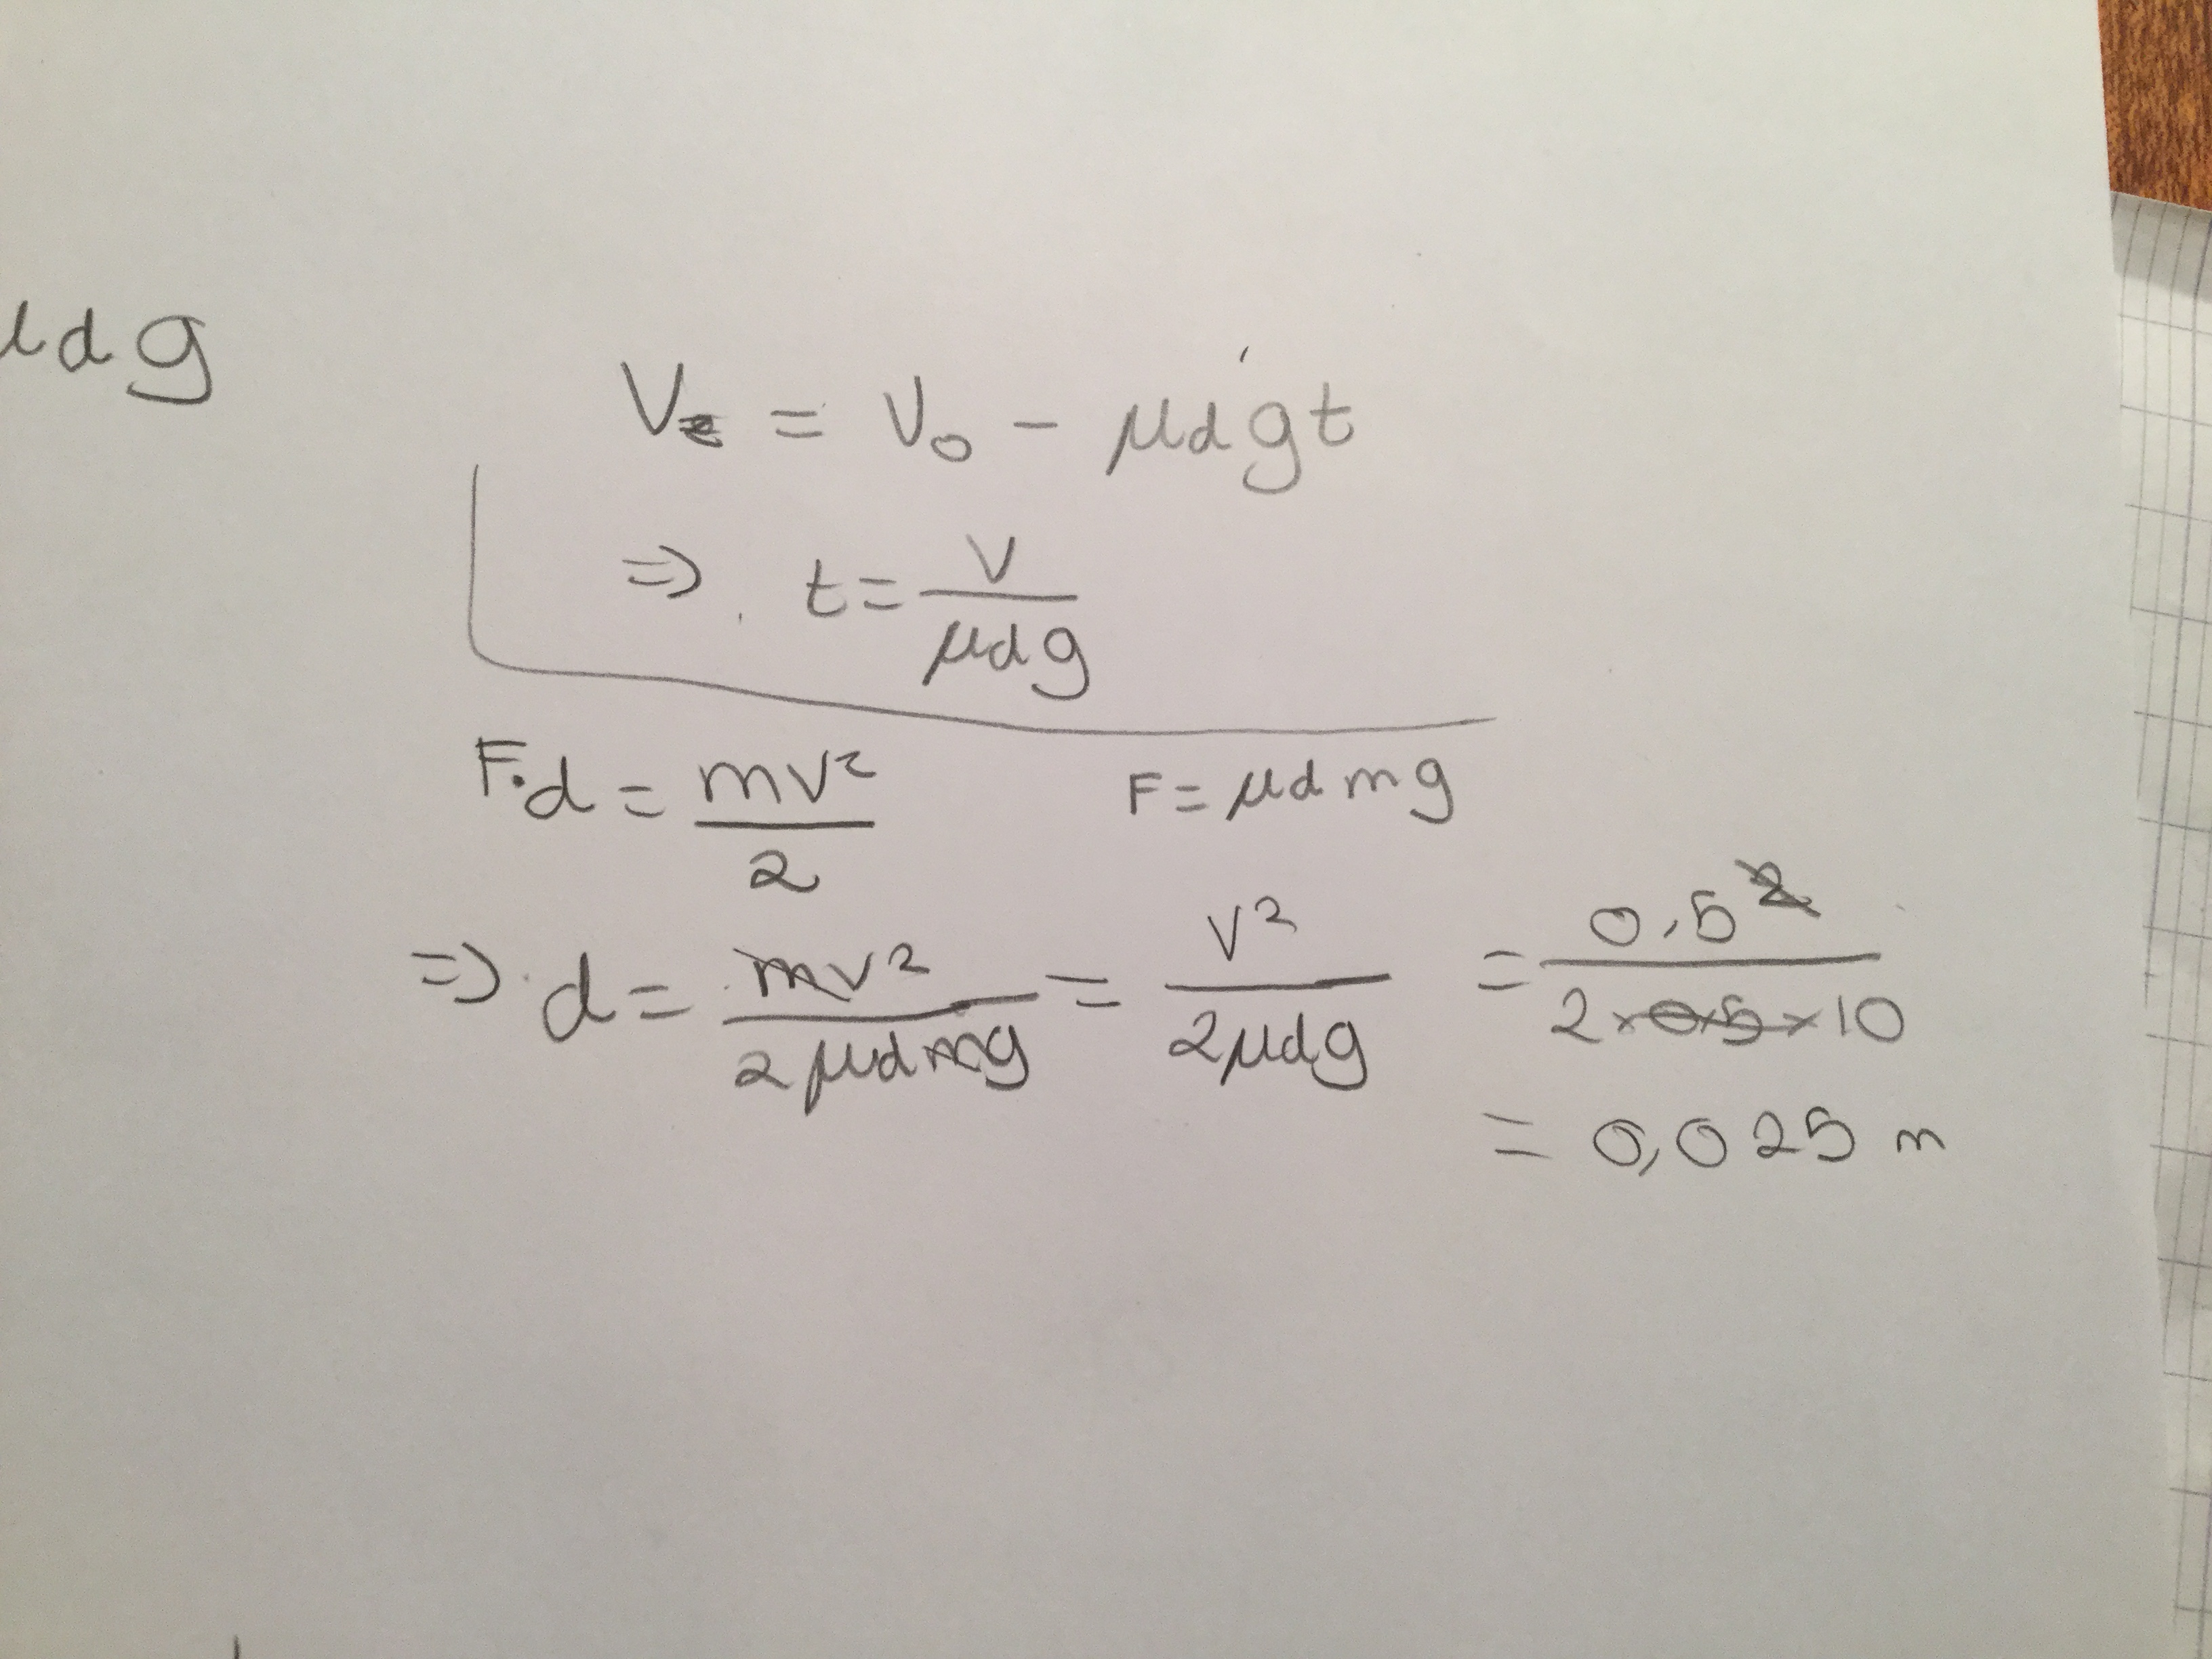 μdg
V = V₀ - μdgt
=> t = V / μdg
F·d = mv² / 2 F = μdmg
=> d = mv² / 2μdmg = V² / 2μdg = 0,5² / 2×0,5×10
= 0,025 m